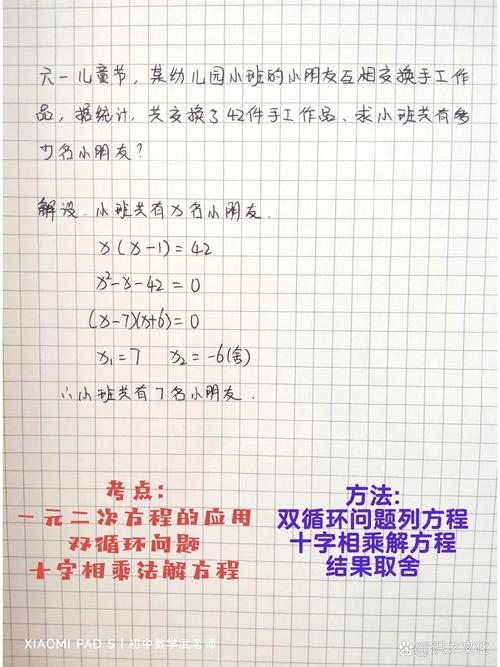 六一儿童节，某幼儿园小班的小朋友互相交换手工作
品，据统计，共交换了42件手工作品、求小班共有多
少名小朋友？
解设.小班共有x名小朋友.
x(x-1)=42
x²-x-42=0
(x-7)(x+6)=0
x₁=7 x₂=-6(舍)
∴小班共有7名小朋友.
考点：
一元二次方程的应用
双循环问题
十字相乘法解方程
方法:
双循环问题列方程
十字相乘解方程
结果取舍
XIAOMI PAD 5 | 初中数学武老师
识之文化